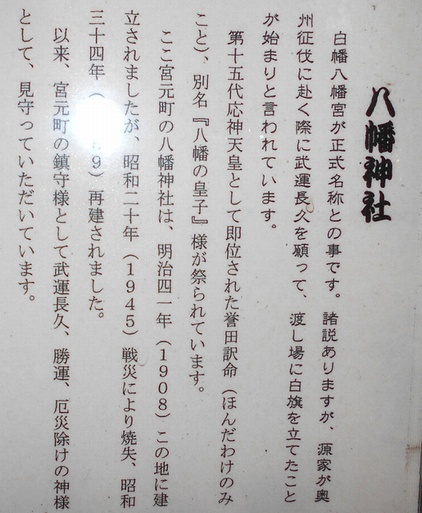 八幡神社
白幡八幡宮が正式名称との事です。諸説ありますが、源家が奥
州征伐に赴く際に武運長久を願って、渡し場に白旗を立てたこと
が始まりと言われています。
第十五代応神天皇として即位された誉田訳命（ほんだわけのみ
こと）、別名『八幡の皇子』様が祭られています。
ここ宮元町の八幡神社は、明治四一年（1908）この地に建
立されましたが、昭和二十年（1945）戦災により焼失、昭和
三十四年（ 9）再建されました。
以来、宮元町の鎮守様として武運長久、勝運、厄災除けの神様
として、見守っていただいています。